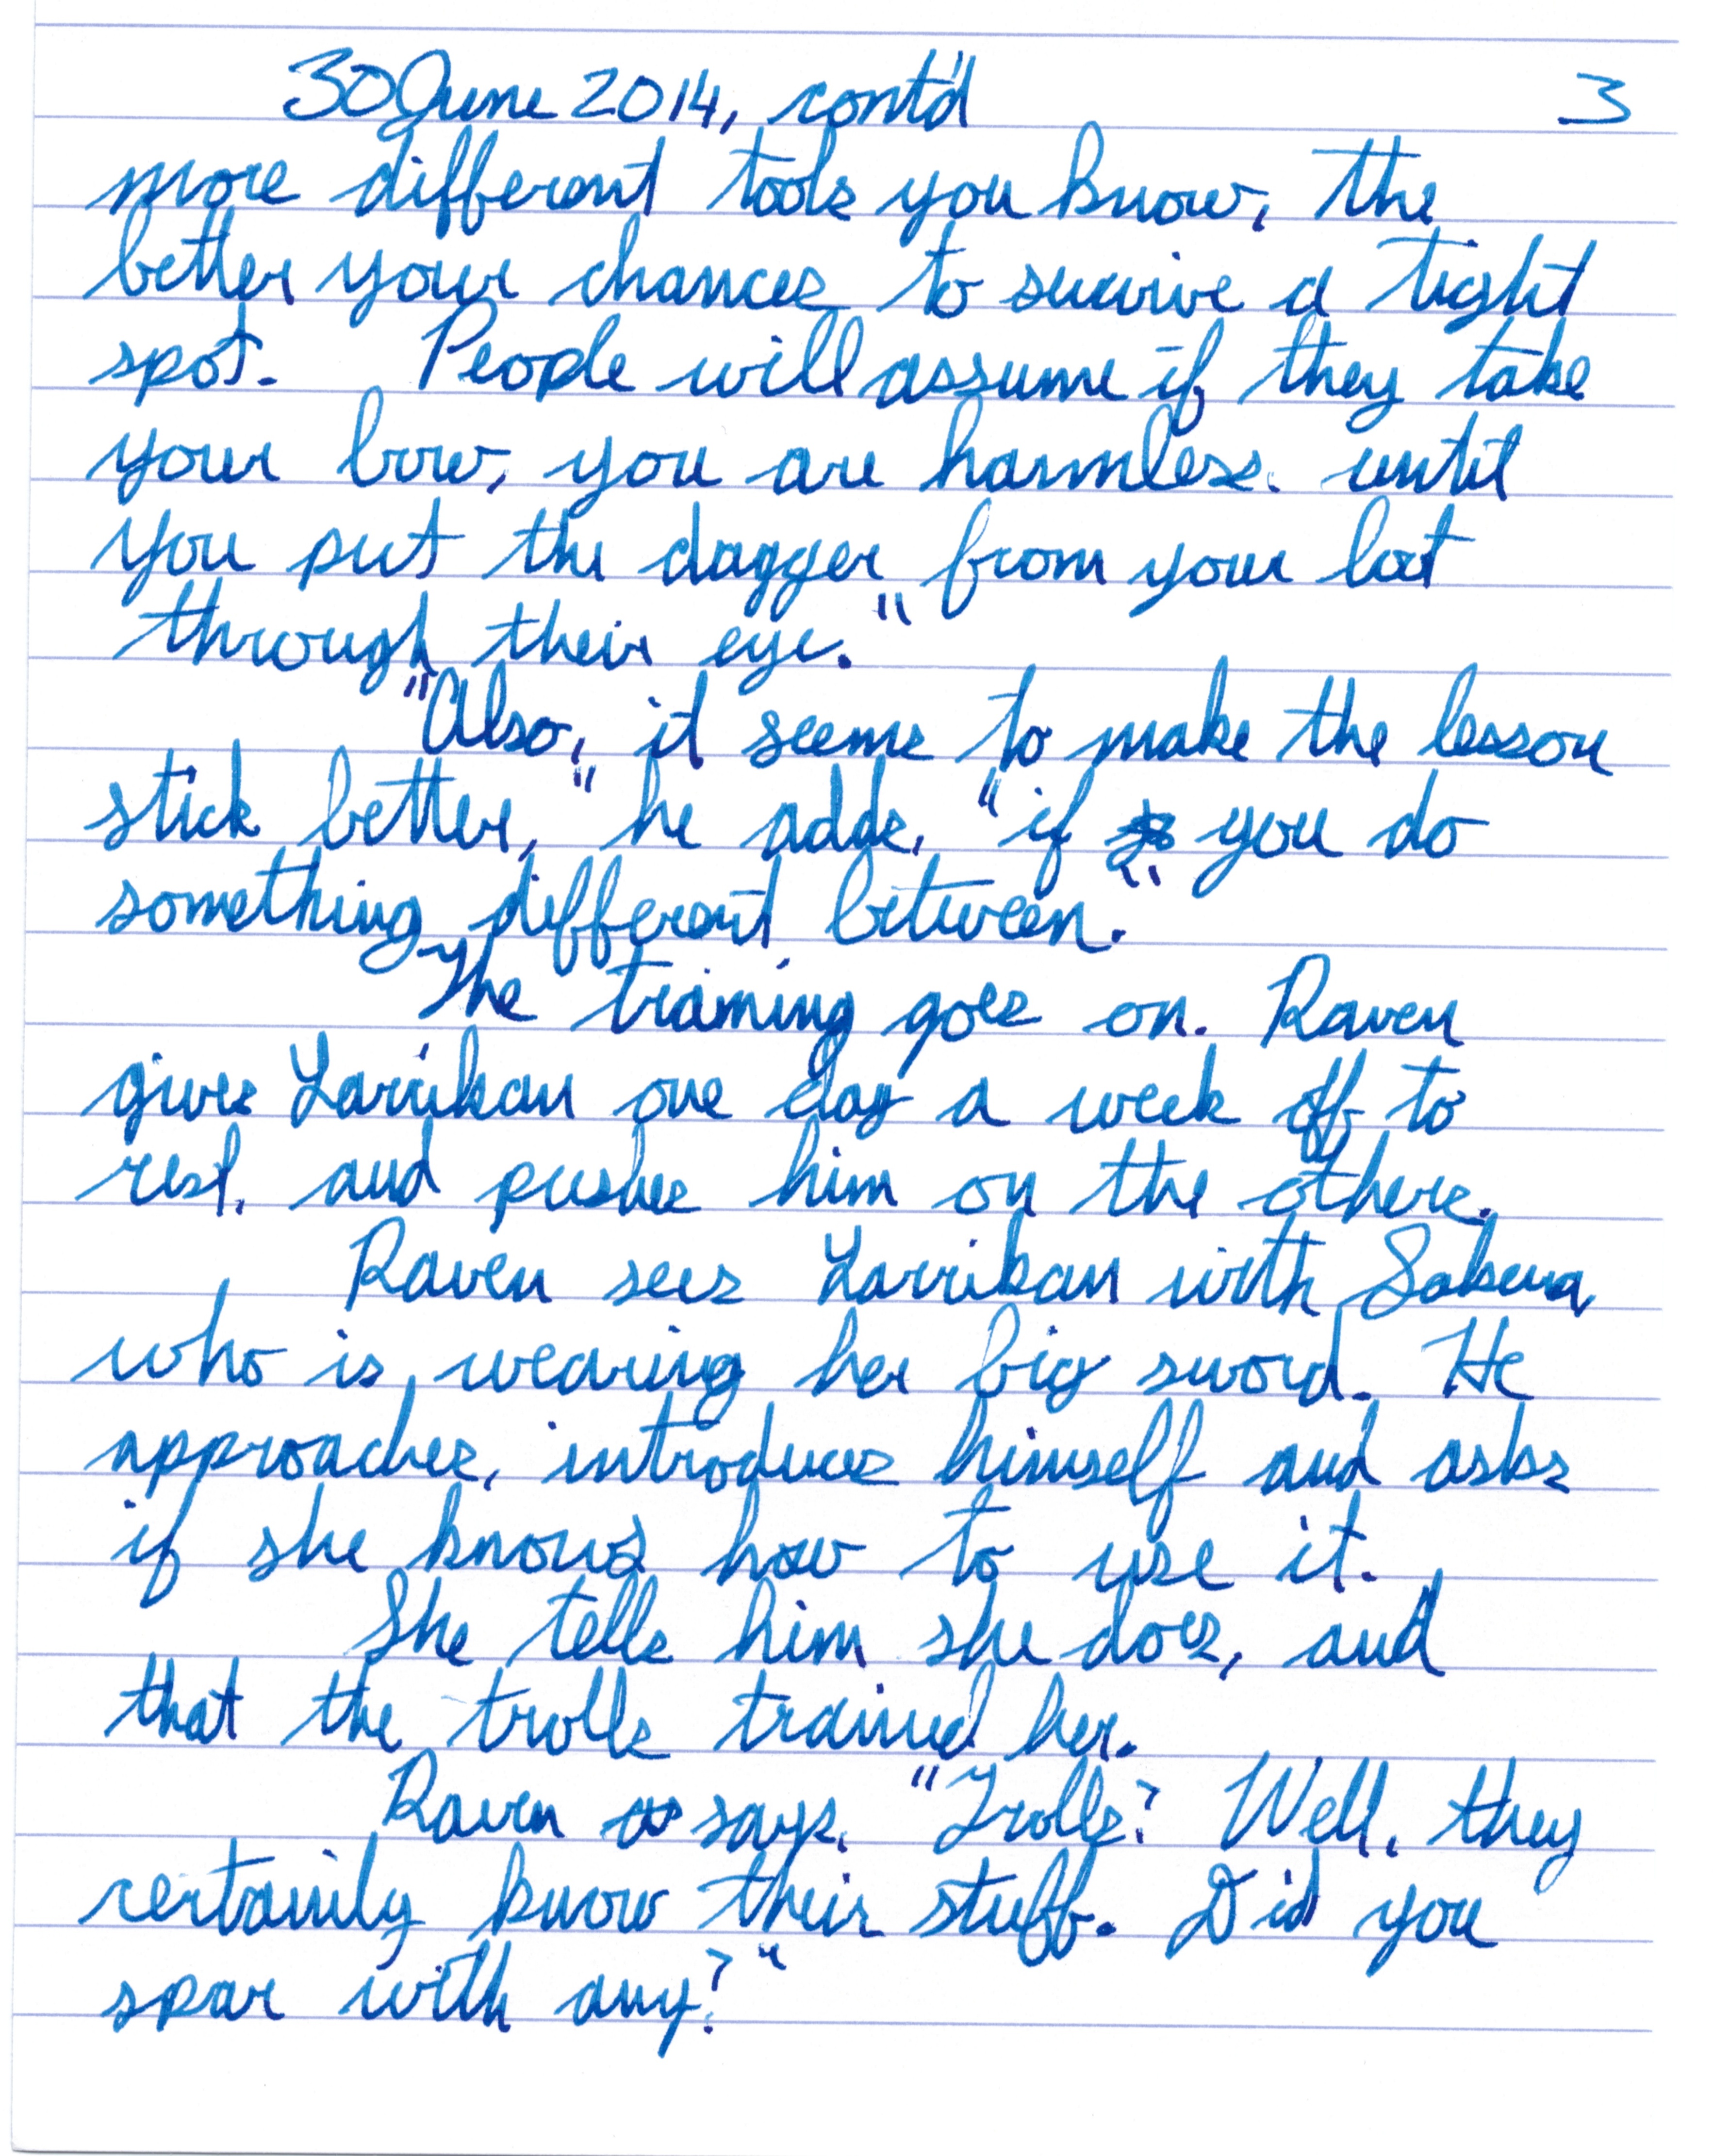 30 June 2014, cont'd 3
more different tools you know, the
better your chances to survive a tight
spot. People will assume if they take
your bow, you are harmless. until
you put the dagger from your boot
through their eye."
"Also, it seems to make the lesson
stick better," he adds, "if you do
something different between."
The training goes on. Raven
gives Larrikan one day a week off to
rest, and pushes him on the others.
Raven sees Larrikan with
who is wearing her big sword. He
approaches, introduces himself and asks
if she knows how to use it.
She tells him she does, and
that the trolls trained her.
Raven says, "Trolls? Well, they
certainly know their stuff. Did you
spar with any?"